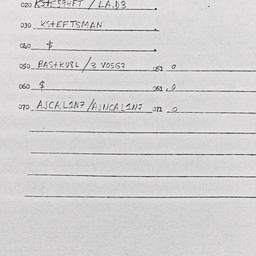 020 / LA.D3
030 KSTEFTSMAN
040 $
050 BASTKV8L / 3 VOSG2 051 0
060 $ 061 .0
070 AJCAL1N7 / AJNCAL1N7 071 0